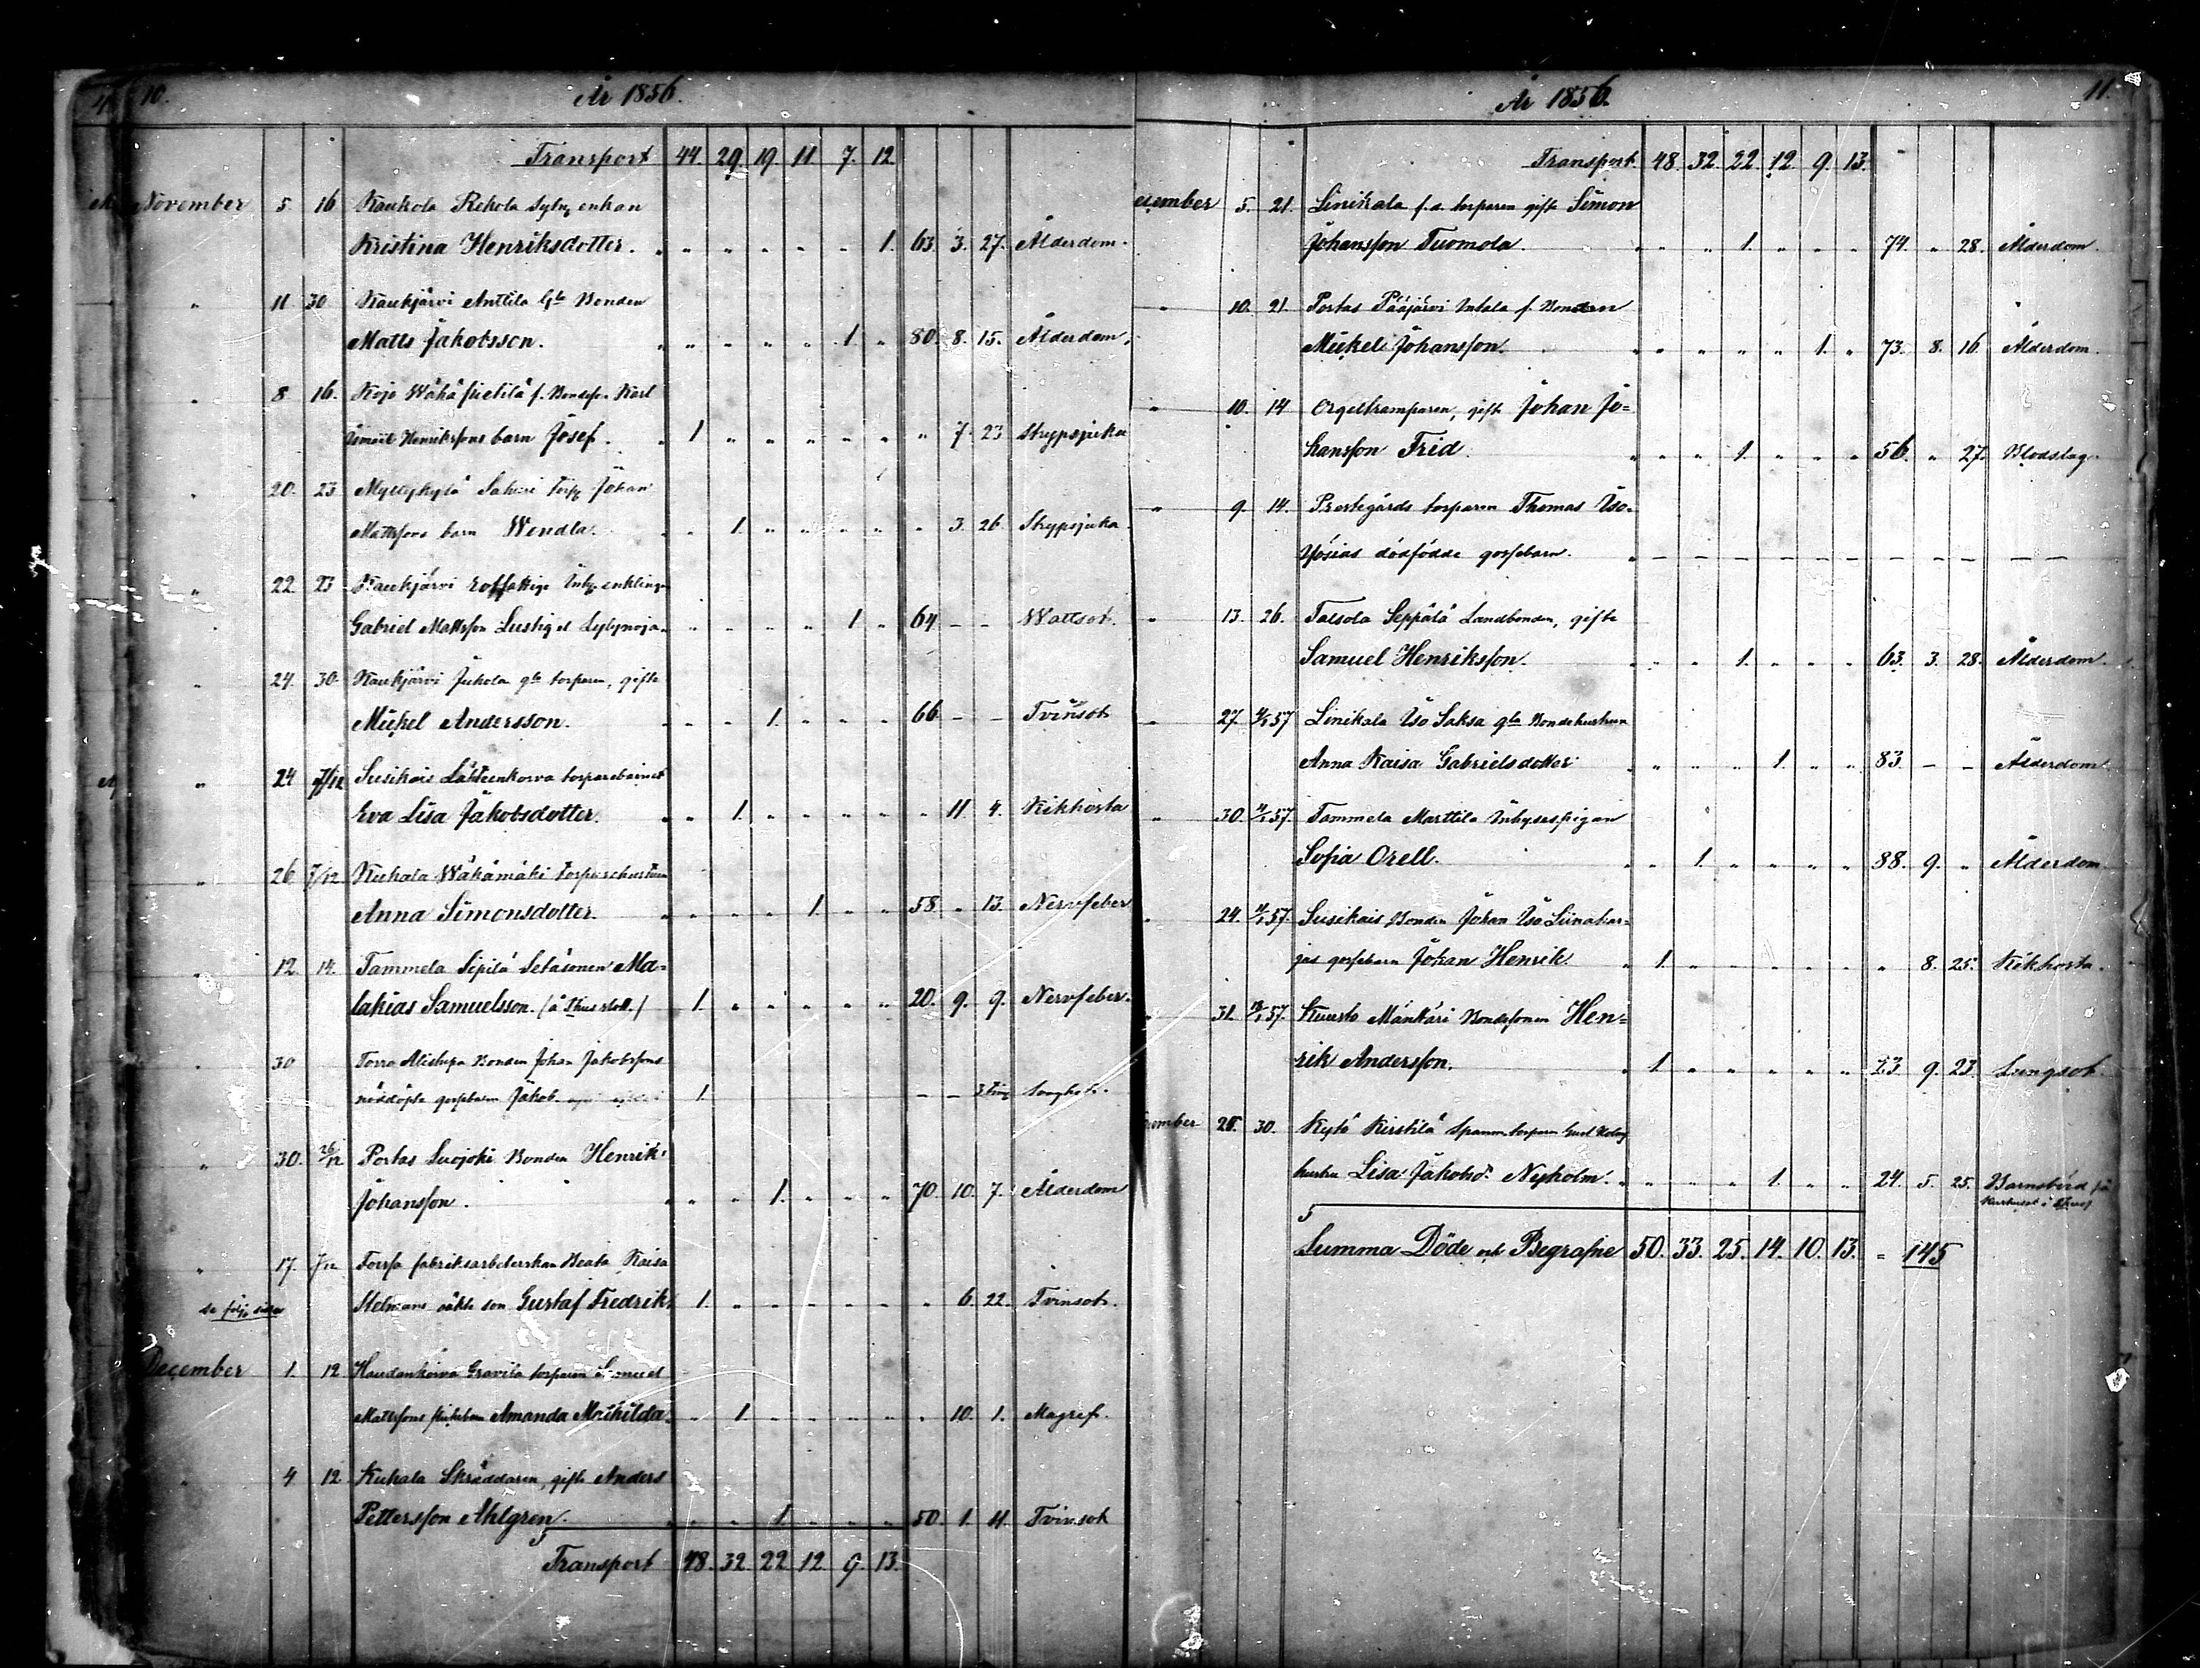 10. År 1856.
Transport 44. 29. 19. 11 7. 12
November 5. 16 Kaukola Rekola enkan
Kristina Henriksdotter. „ „ „ „ „ „ 1. 63. 3. 27. Ålderdom.
„ 11 30 Kaukjärvi Anttila Gle Bonden
Matts Jakobsson. „ „ „ „ „ 1. „ 80. 8. 15. Ålderdom.
„ 8 16. Kojo f. Bondes. Karl
Henrikssons barn Josef. „ 1 „ „ „ „ „ „ „ 7. 23 Strypsjuka
„ 20. 23. Myllykylä Johan
Mattssons barn Wendla. „ „ 1. „ „ „ „ „ „ 3. 26. Strypsjuka.
„ 22. 23 Kaukjärvi enklingen
Gabriel Mattsson Lustig „ „ „ „ „ 1 „ 64 – – Wattsot.
„ 24. 30. Kaukjärvi Jukola gle torparen, gifte
Mickel Andersson. „ „ „ 1. „ „ „ 66 – – Tvinsot
„ 24 7/12 Susikais torparebarnet
Eva Lisa Jakobsdotter. „ „ 1. „ „ „ „ „ „ 11. 4. Kikhosta
„ 26 7/12 Kuhala Wähämäki torparehustrun
Anna Simonsdotter. „ „ „ „ 1. „ „ 58. „ 13. Nervfeber
„ 12. 14. Tammela Sipilä Ma=
lakias Samuelsson. „ 1. „ „ „ „ „ „ 20. 9. 9. Nervfeber.
„ 30 Torro Bonden Johan Jakobssons
nöddöpta gossebarn Jakob 1. – –
„ 30. 26/12 Portas Suojoki Bonden Henrik
Johansson. „ „ „ 1. „ „ „ 70. 10. 7. Ålderdom
„ 17. 7/12 Forssa fabriksarbeterskan Beata Kaisa
se följ. sidan oäkta son Gustaf Fredrik 1. „ „ „ „ „ „ 6. 22. Tvinsot.
December 1. 12 Haudankorva torparen Samuel
Mattssons flickebarn Amanda Mathilda. „ „ 1. „ „ „ „ „ 10. 1. Magref.
„ 4 12 Kuhala Skräddaren, gifte Anders
Pettersson Ahlgren. „ „ „ 1. „ „ „ 50. 1. 11. Tvinsot
Transport 48. 32. 22 12. 9. 13.
År 1856. 11.
Transport. 48. 32. 22. 12. 9. 13.
ecember 5. 21. Linikala f. d. torparen gifte Simon
Johansson Tuomola. „ „ „ 1. „ „ „ 74. „ 28. Ålderdom.
„ 10. 21. Portas Pääjärvi f. Bonden
Mickel Johansson. „ „ „ „ „ 1. „ 73. 8. 16. Ålderdom.
„ 10. 14. Orgeltramparen, gifte Johan Jo=
hansson Frid. „ „ „ 1. „ „ „ 56. „ 27. Blodslag.
„ 9. 14. Prestegårds torparen Thomas Iso-
dödfödde gossebarn. – – – – – – – – – – –
„ 13. 26. Talsola Seppälä Landbonden, gifte
Samuel Henriksson. „ „ „ 1. „ „ „ 63. 3. 28. Ålderdom.
„ 27. 4/1 57 Linikala Iso Saksa gla Bondehustrun
Anna Kaisa Gabrielsdotter „ „ „ „ 1. „ „ 83. – – Ålderdom
„ 30. 4/1 57. Tammela Marttila Inhysespigan
Sofia Orell. „ „ 1. „ „ „ „ 88. 9. „ Ålderdom
„ 24. 4/1 57. Susikais Bonden Johan Iso Liinahar=
jas gossebarn Johan Henrik. „ 1. „ „ „ „ „ „ 8. 25. Kikhosta.
31. 18/1 57. Kuusto Mänkäri Bondesonen Hen=
rik Andersson. „ 1. „ „ „ „ „ 23. 9. 23. Lungsot.
ember 25. 30. Kytö Kirstilä
hustru Lisa Jakobsdr Nyholm. „ „ „ „ 1. „ „ 24. 5. 25. Barnsbörd på
Kurhuset i
Summa Döde och Begrafne 50. 33. 25. 14. 10. 13. = 145